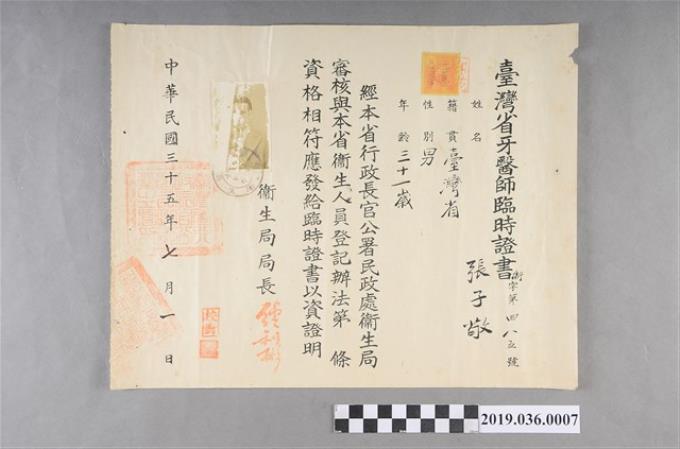 臺灣省牙醫師臨時證書
衛字第四八五號
姓名 張子敬
籍貫 臺灣省
性別 男
年齡 三十一歲
經本省行政長官公署民政處衞生局
審核與本省衞生人員登記辦法第 條
資格相符應發給臨時證書以資證明
衞生局局長
中華民國三十五年七月一日
2019.036.0007